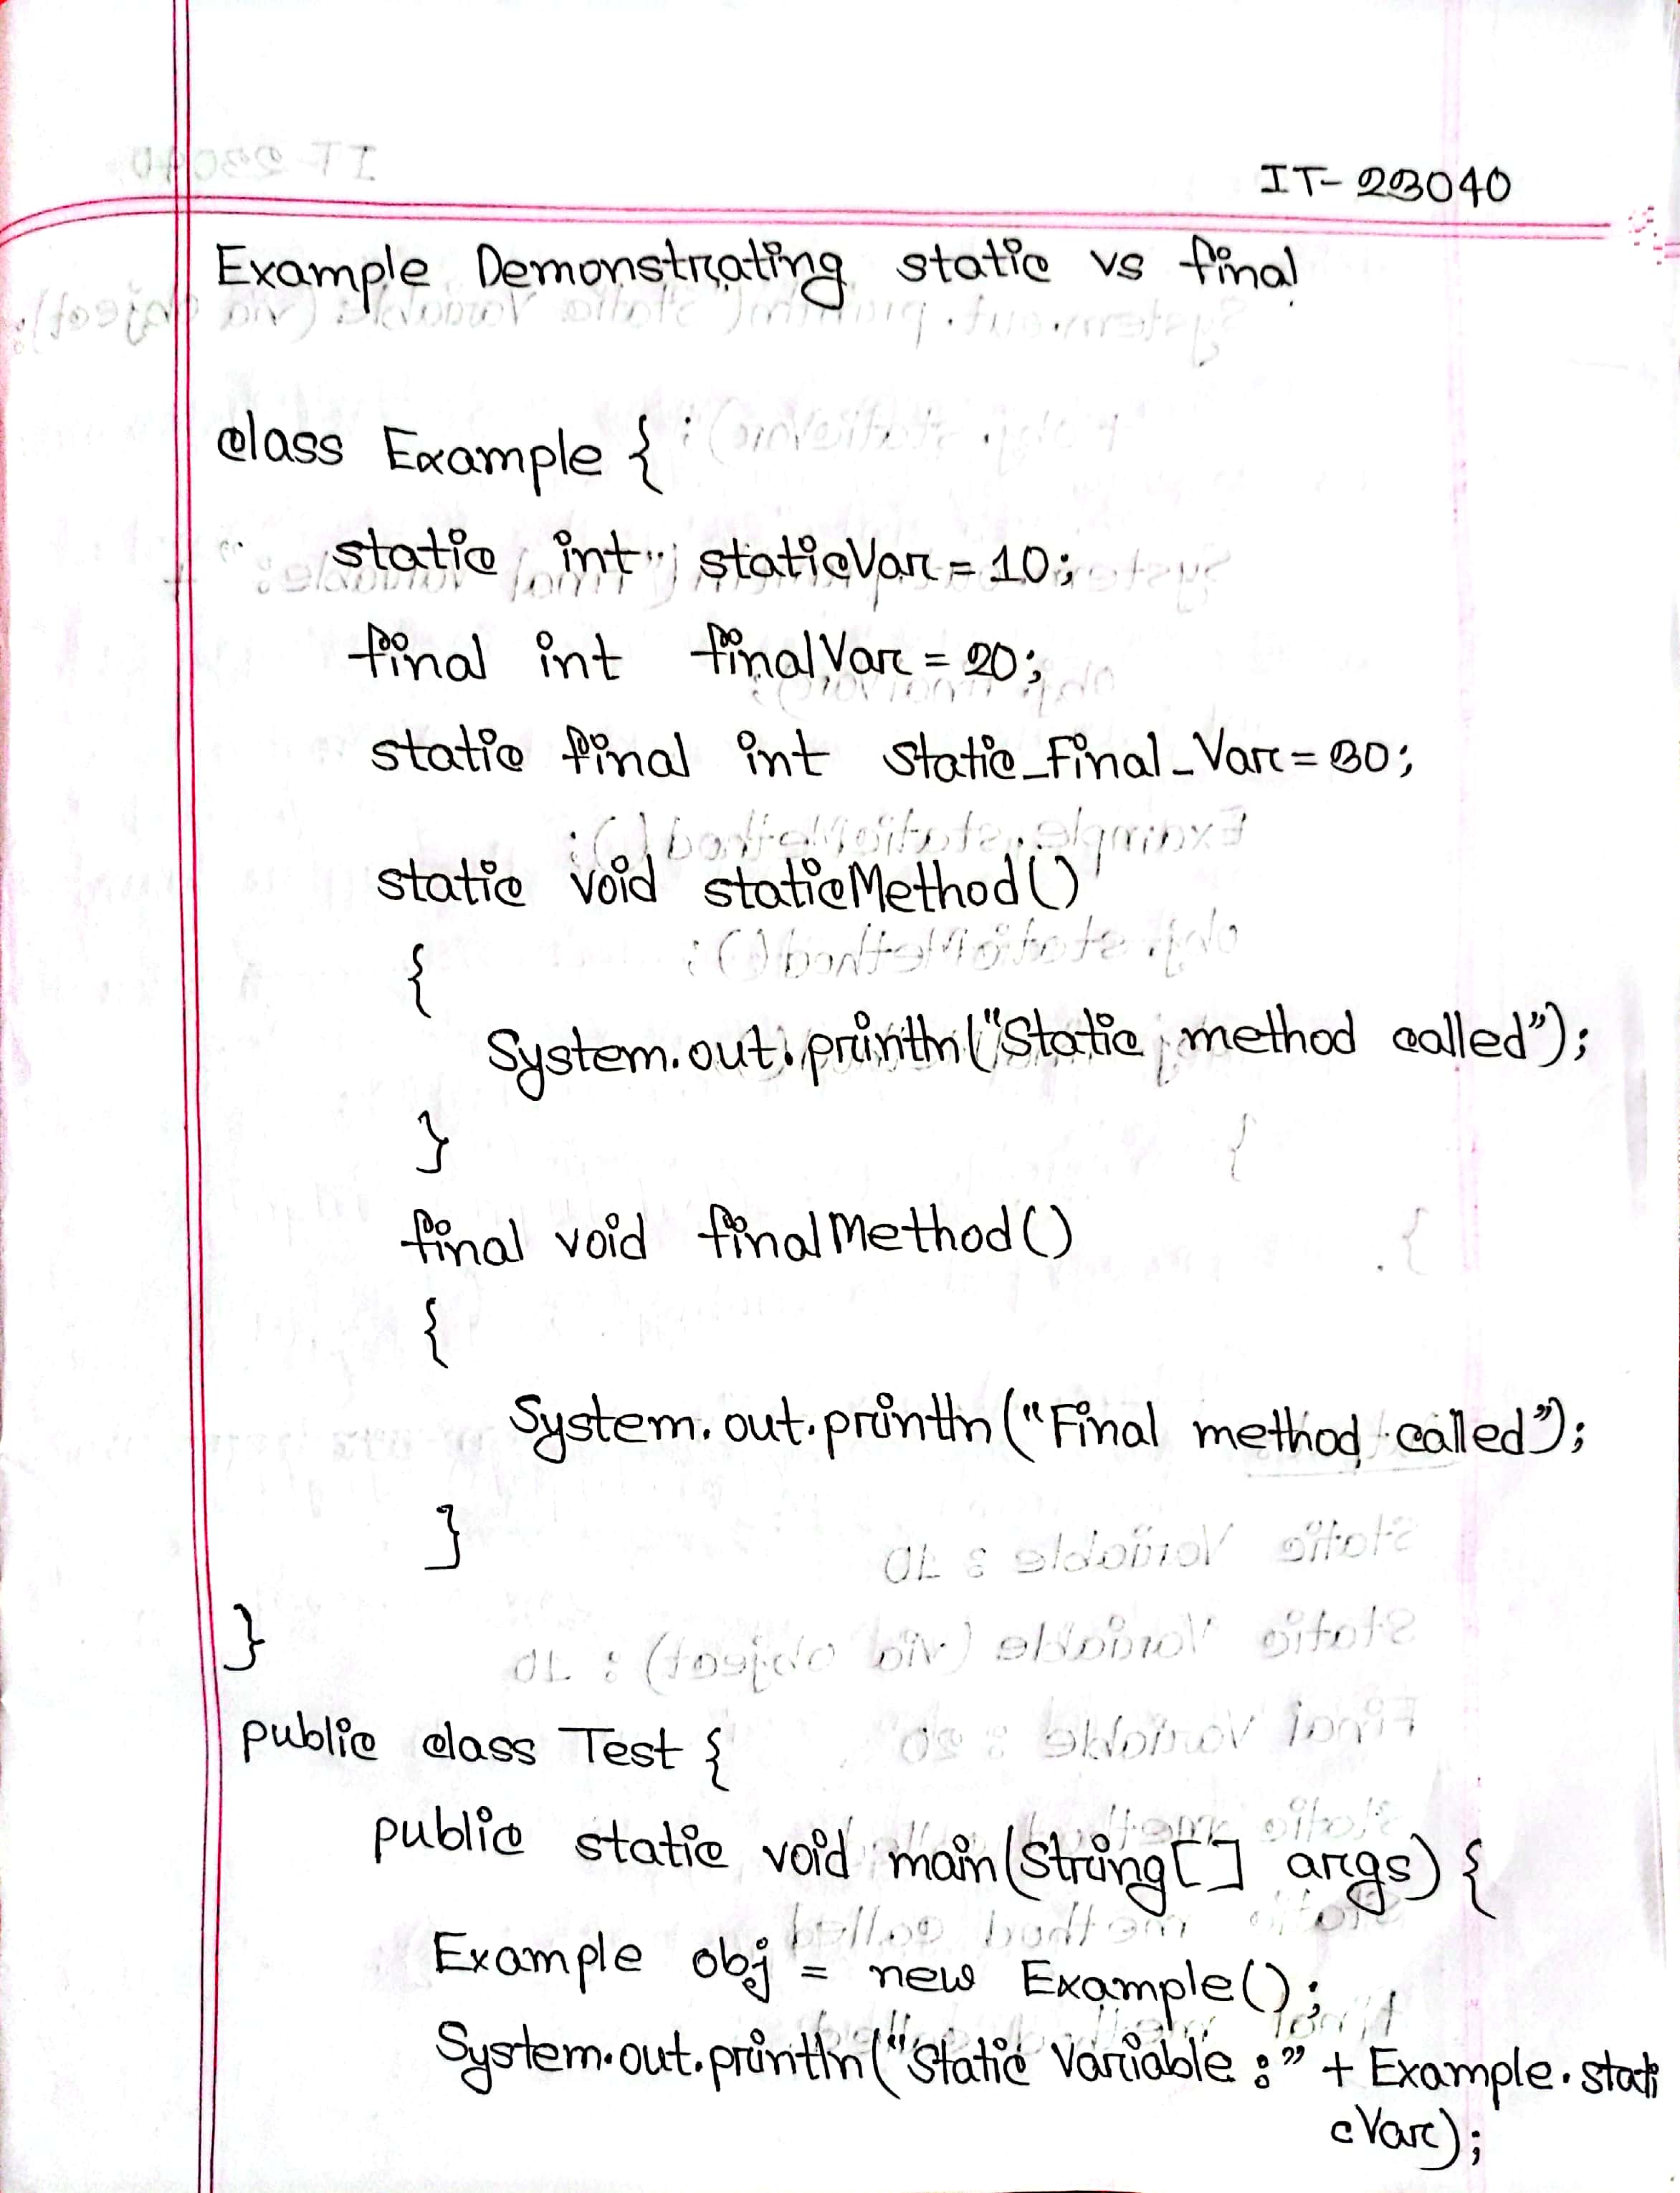 IT-23040
Example Demonstrating static vs final
class Example {
static int staticVar = 10;
final int finalVar = 20;
static final int Static_Final_Var = 30;
static void staticMethod()
{
System.out.println("Static method called");
}
final void finalMethod()
{
System.out.println("Final method called");
}
}
public class Test {
public static void main(String[] args) {
Example obj = new Example();
System.out.println("Static Variable :" + Example.stati
cVar);